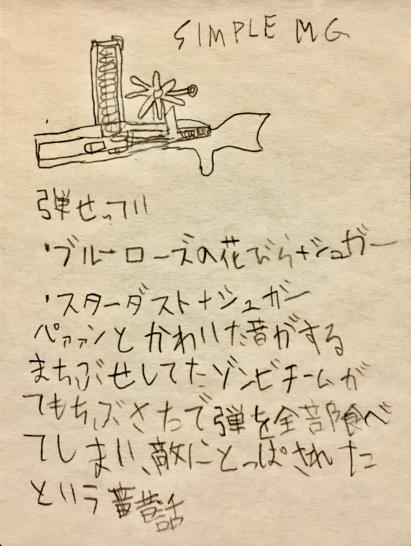 SIMPLE MG
弾せってい
・ブルーローズの花びら+シュガー
・スターダスト+シュガー
パァァンとかわいた音がする
まちぶせしてたゾンビチームが
てもちぶさたで弾を全部食べ
てしまい、敵にとっぱされた
という昔話